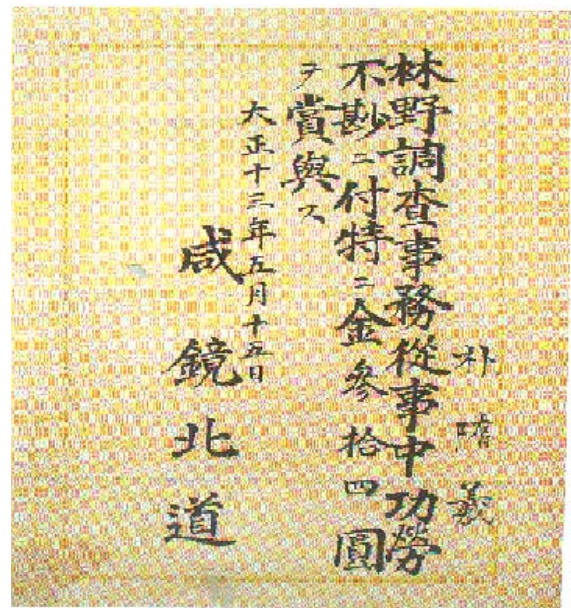 朴 義
林野調査事務從事中功勞
不尠ニ付特ニ金參拾四圓
ヲ賞與ス
大正十三年五月十五日
咸鏡北道